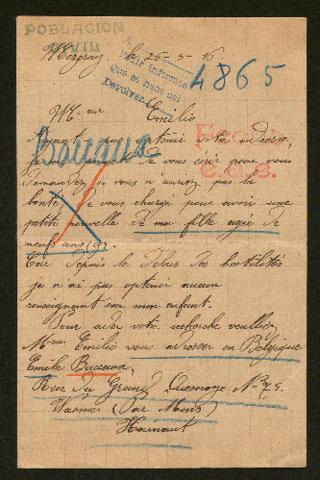 POBLACION
CIVIL
le 25-5-16
Pedir informes
Que se hace del
Devolver
4865
Mr eur Emilio
Ayant pu obtenir votre adresse,
je vous écris pour vous
demander si vous n'auriez pas la
bonté de vous charger pour avoir une
petite nouvelle de ma fille agée de
neufs ans (9).
Car depuis le début des hostilités
je n'ai pas optenir aucun
renseignement sur mon enfant.
Pour aider votre recherche veuillez
Mseur Emilio vous adresser en Belgique
Emile
Rue du Grand Quesnoy No 75.
Wasmes (Par Mons)
Hainaut